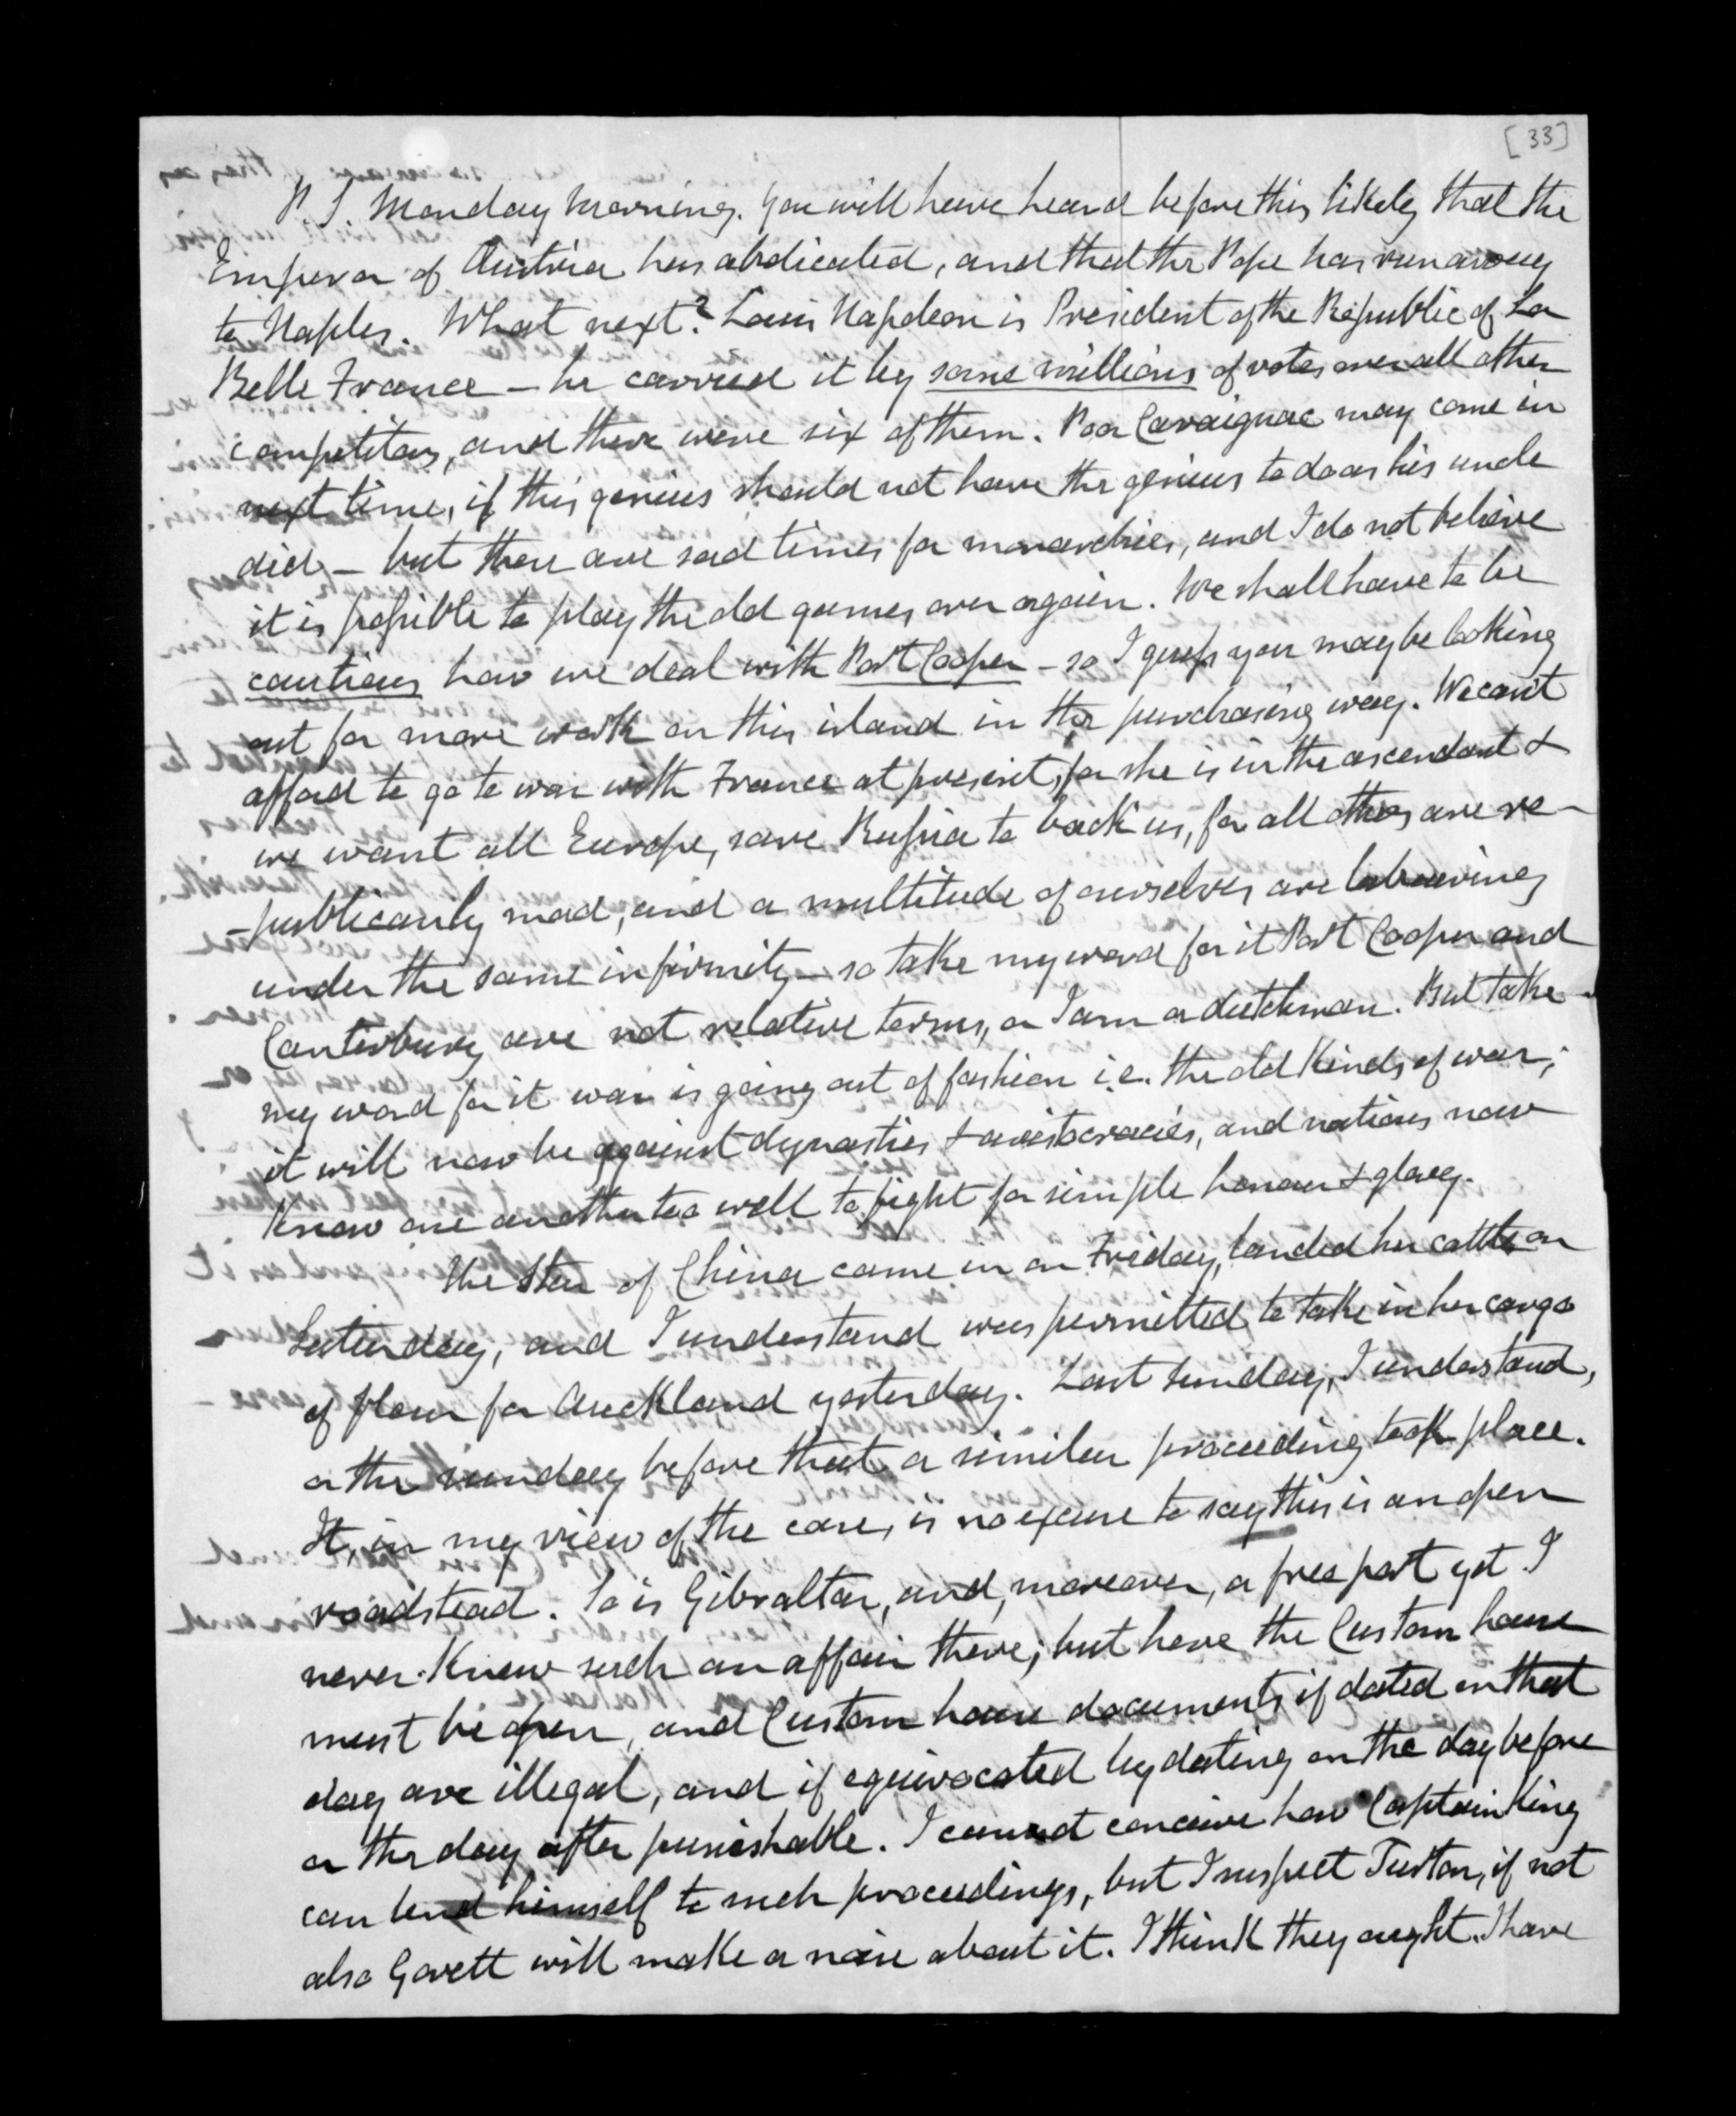 [33]
P.S. Monday Morning. You will have heard before this likely that the
Emperor of Austria has abdicated, and that the Pope has run away
to Naples. What next? Louis Napoleon is President of the Republic of La
Belle France - he carried it by some millions of votes over all other
competitors, and there were six of them. Poor Cavaignac may come in
next time, if this genius should not have the genius to do as his uncle
did - but these are sad times for monarchies, and I do not believe
it is possible to play the old games over again. We shall have to be
cautious how we deal with Port Cooper - so I guess you may be looking
out for more work on this island in the purchasing way. We can't
afford to go to war with France at present, for she is in the ascendant &
we want all Europe, save Russia to back us, for all others are re-
-publicanly mad, and a multitude of ourselves are labouring
under the same infirmity - so take my word for it Port Cooper and
Canterbury are not relative terms, or I am a dutchman. But take
my word for it war is going out of fashion i.e. the old kinds of war;
it will now be against dynasties & aristocracies, and nations now
know one another too well to fight for simple honour & glory.
The Star of China came in on Friday, landed her cattle on
Saturday, and I understand was permitted to take in her cargo
of flour for Auckland yesterday. Last Sunday, I understand,
or the sunday before that a similar proceeding took place.
It, in my view of the case, is no excuse to say this is an open
roadstead. So is Gibraltar, and, moreover, a free port yet I
never knew such an affair there; but here the Custom house
must be open, and Custom house documents if dated on that
day are illegal, and if equivocated by dating on the day before
or the day after punishable. I cannot conceive how Captain King
can lend himself to such proceedings, but I suspect Turton, if not
also Govett will make a noise about it. I think they ought. I have